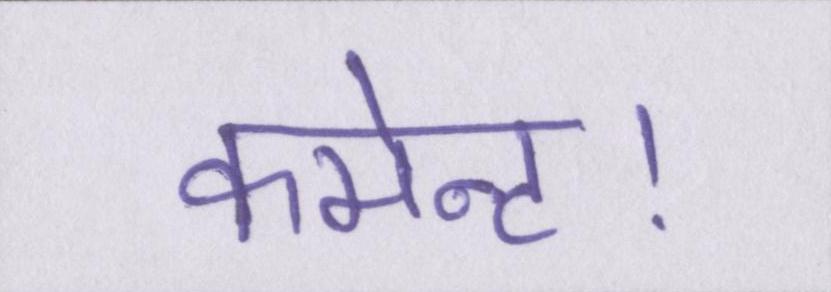 कमेन्ट!